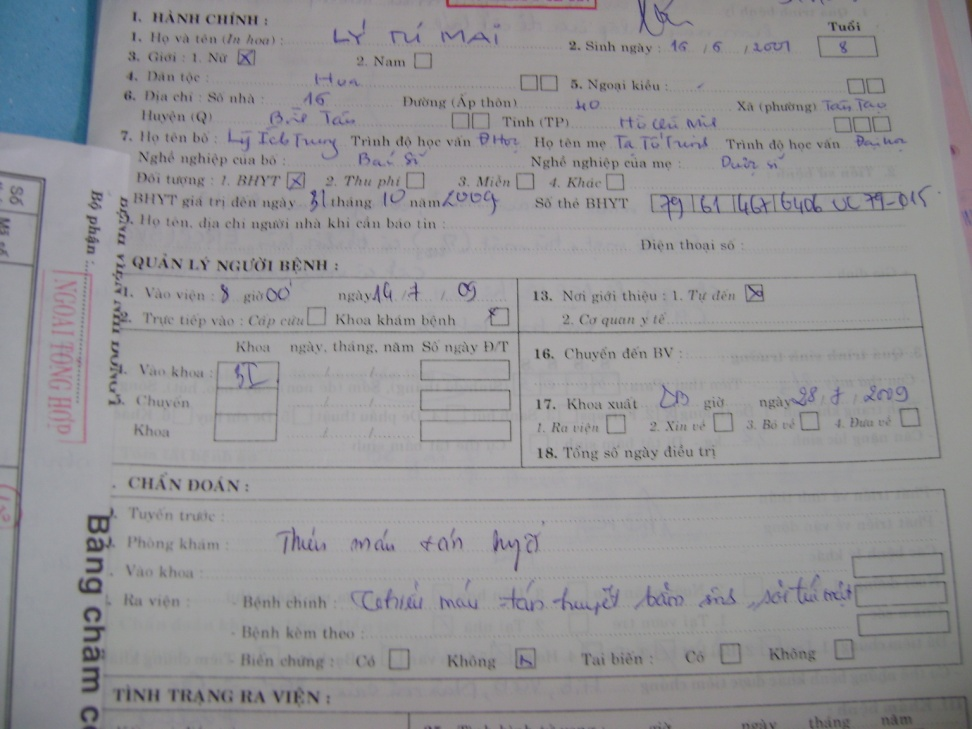 I. HÀNH CHÍNH :
Tuổi
1. Họ và tên (In hoa) : LÝ TÚ MAI 2. Sinh ngày : 16 / 6 / 2001 8
3. Giới : 1. Nữ X 2. Nam
4. Dân tộc : Hoa 5. Ngoại kiều :
6. Địa chỉ : Số nhà : 16 Đường (Ấp thôn) 40 Xã (phường) Tân Tạo
Huyện (Q) Bình Tân Tỉnh (TP) Hồ Chí Minh
7. Họ tên bố : Lý Ích Trung Trình độ học vấn Đ Học Họ tên mẹ Tạ Tố Trinh Trình độ học vấn Đại học
Nghề nghiệp của bố : Bác sĩ Nghề nghiệp của mẹ : Dược sĩ
Đối tượng : 1. BHYT X 2. Thu phí 3. Miễn 4. Khác
BHYT giá trị đến ngày 31 tháng 10 năm 2009 Số thẻ BHYT 79 61 6406 79-015
Họ tên, địa chỉ người nhà khi cần báo tin :
Điện thoại số :
QUẢN LÝ NGƯỜI BỆNH :
1. Vào viện : 8 giờ 00' ngày 14 / 7 / 09
2. Trực tiếp vào : Cấp cứu Khoa khám bệnh X
Khoa ngày, tháng, năm Số ngày Đ/T
Vào khoa :
Chuyển / /
Khoa / /
13. Nơi giới thiệu : 1. Tự đến X
2. Cơ quan y tế
16. Chuyển đến BV :
17. Khoa xuất giờ ngày 28 / 7 / 2009
1. Ra viện 2. Xin về 3. Bỏ về 4. Đưa về
18. Tổng số ngày điều trị
. CHẨN ĐOÁN :
Tuyến trước :
Phòng khám : Thiếu máu tán huyết
Vào khoa :
Ra viện : - Bệnh chính : Thiếu máu tán huyết bẩm sinh, sỏi túi mật
- Bệnh kèm theo :
- Biến chứng : Có Không Tai biến : Có Không
TÌNH TRẠNG RA VIỆN :
giờ ngày tháng năm
Số
Bộ phận :
NGOẠI TỔNG HỢP
Bảng chấm